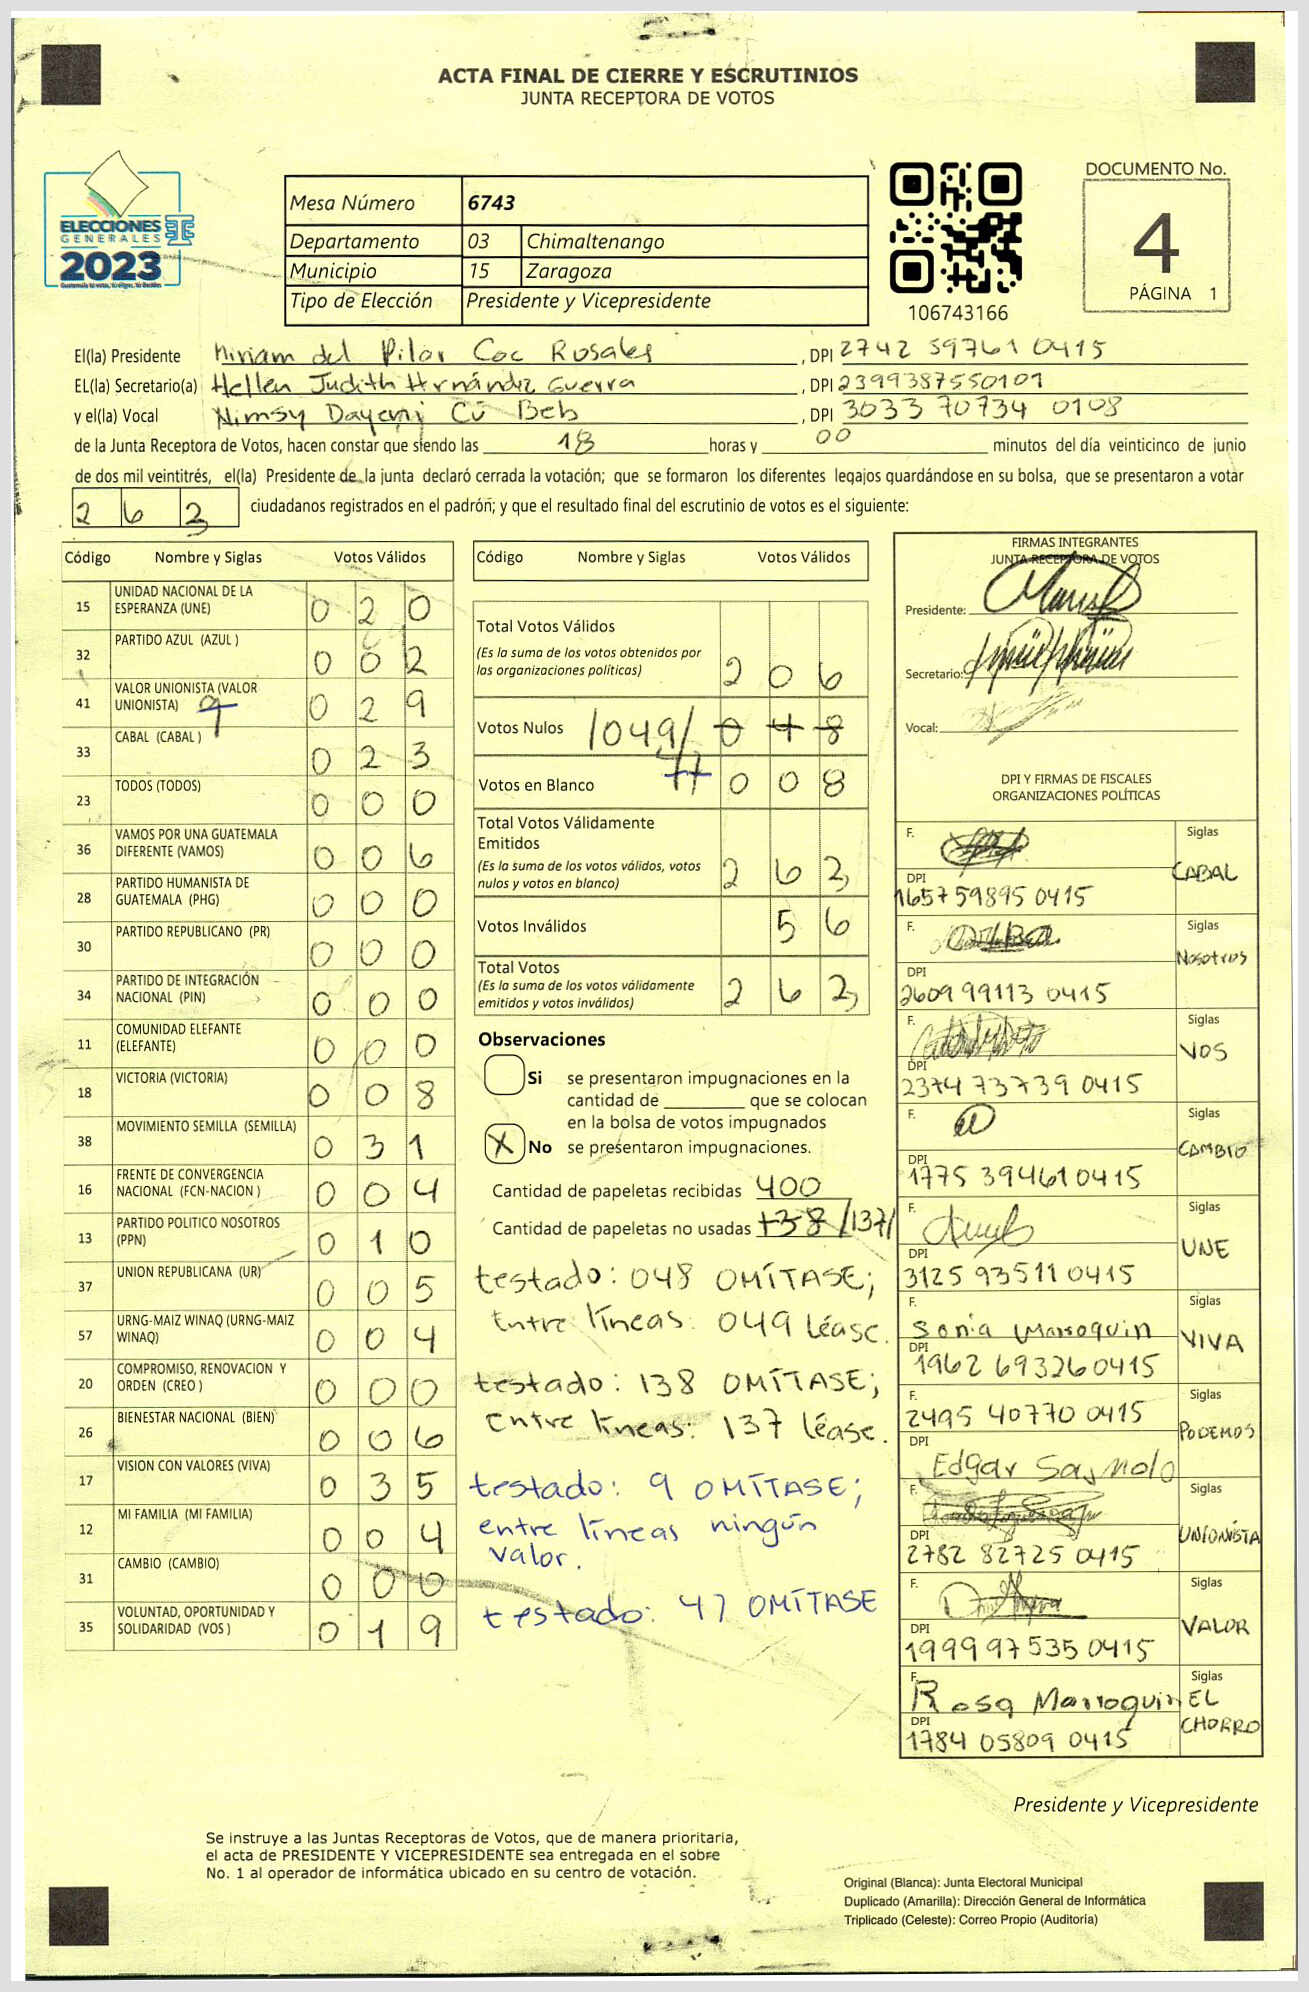 ACTA FINAL DE CIERRE Y ESCRUTINIOS
JUNTA RECEPTORA DE VOTOS
ELECCIONES
GENERALES
2023
Mesa Número 6743
Departamento 03 Chimaltenango
Municipio 15 Zaragoza
Tipo de Elección Presidente y Vicepresidente
106743166
DOCUMENTO No.
4
PÁGINA 1
El(la) Presidente Miriam del Pilar Coc Rosales, DPI 2742 39761 0415
EL(la) Secretario(a) Hellen Judith Hrnándiz Guerra, DPI 2399387550101
y el(la) Vocal Nimsy Dayemi Cú Beb, DPI 3033 70734 0108
de la Junta Receptora de Votos, hacen constar que siendo las 18 horas y 00 minutos del día veinticinco de junio
de dos mil veintitrés, el(la) Presidente de la junta declaró cerrada la votación; que se formaron los diferentes legajos guardándose en su bolsa, que se presentaron a votar
263 ciudadanos registrados en el padrón; y que el resultado final del escrutinio de votos es el siguiente:
Código Nombre y Siglas Votos Válidos
15 UNIDAD NACIONAL DE LA ESPERANZA (UNE) 0 2 0
32 PARTIDO AZUL (AZUL ) 0 0 2
41 VALOR UNIONISTA (VALOR UNIONISTA) 9 0 2 9
33 CABAL (CABAL ) 0 2 3
23 TODOS (TODOS) 0 0 0
36 VAMOS POR UNA GUATEMALA DIFERENTE (VAMOS) 0 0 6
28 PARTIDO HUMANISTA DE GUATEMALA (PHG) 0 0 0
30 PARTIDO REPUBLICANO (PR) 0 0 0
34 PARTIDO DE INTEGRACIÓN NACIONAL (PIN) 0 0 0
11 COMUNIDAD ELEFANTE (ELEFANTE) 0 0 0
18 VICTORIA (VICTORIA) 0 0 8
38 MOVIMIENTO SEMILLA (SEMILLA) 0 3 1
16 FRENTE DE CONVERGENCIA NACIONAL (FCN-NACION ) 0 0 4
13 PARTIDO POLITICO NOSOTROS (PPN) 0 1 0
37 UNION REPUBLICANA (UR) 0 0 5
57 URNG-MAIZ WINAQ (URNG-MAIZ WINAQ) 0 0 4
20 COMPROMISO, RENOVACION Y ORDEN (CREO ) 0 0 0
26 BIENESTAR NACIONAL (BIEN) 0 0 6
17 VISION CON VALORES (VIVA) 0 3 5
12 MI FAMILIA (MI FAMILIA) 0 0 4
31 CAMBIO (CAMBIO) 0 0 0
35 VOLUNTAD, OPORTUNIDAD Y SOLIDARIDAD (VOS ) 0 1 9
Código Nombre y Siglas Votos Válidos
Total Votos Válidos
(Es la suma de los votos obtenidos por
las organizaciones políticas) 2 0 6
Votos Nulos /049/ 0 4 8
Votos en Blanco 47 0 0 8
Total Votos Válidamente
Emitidos
(Es la suma de los votos válidos, votos
nulos y votos en blanco) 2 6 3
Votos Inválidos 5 6
Total Votos
(Es la suma de los votos válidamente
emitidos y votos inválidos) 2 6 3
Observaciones
Si se presentaron impugnaciones en la
cantidad de ________ que se colocan
en la bolsa de votos impugnados
X No se presentaron impugnaciones.
Cantidad de papeletas recibidas 400
Cantidad de papeletas no usadas 138 /137/
testado: 048 OMÍTASE;
Entre líneas: 049 léase.
testado: 138 OMÍTASE;
Entre líneas: 137 léase.
testado: 9 OMÍTASE;
entre líneas ningún
valor.
testado: 47 OMÍTASE
FIRMAS INTEGRANTES
JUNTA RECEPTORA DE VOTOS
Presidente:
Secretario:
Vocal:
DPI Y FIRMAS DE FISCALES
ORGANIZACIONES POLÍTICAS
F. Siglas
DPI CABAL
1657 59895 0415
F. Siglas
DPI Nosotros
2609 99113 0415
F. Siglas
DPI VOS
2374 73739 0415
F. Siglas
DPI CAMBIO
1775 39461 0415
F. Siglas
DPI UNE
3125 93511 0415
F. Siglas
Sonia Marroquin VIVA
DPI
1962 69326 0415
F. Siglas
2495 40770 0415 PODEMOS
DPI
Edgar
F. Siglas
DPI UNIONISTA
2782 82725 0415
F. Siglas
DPI VALOR
1999 97535 0415
F. Siglas
Rosa Marroquin EL CHORRO
DPI
1784 05809 0415
Presidente y Vicepresidente
Se instruye a las Juntas Receptoras de Votos, que de manera prioritaria,
el acta de PRESIDENTE Y VICEPRESIDENTE sea entregada en el sobre
No. 1 al operador de informática ubicado en su centro de votación.
Original (Blanca): Junta Electoral Municipal
Duplicado (Amarilla): Dirección General de Informática
Triplicado (Celeste): Correo Propio (Auditoría)